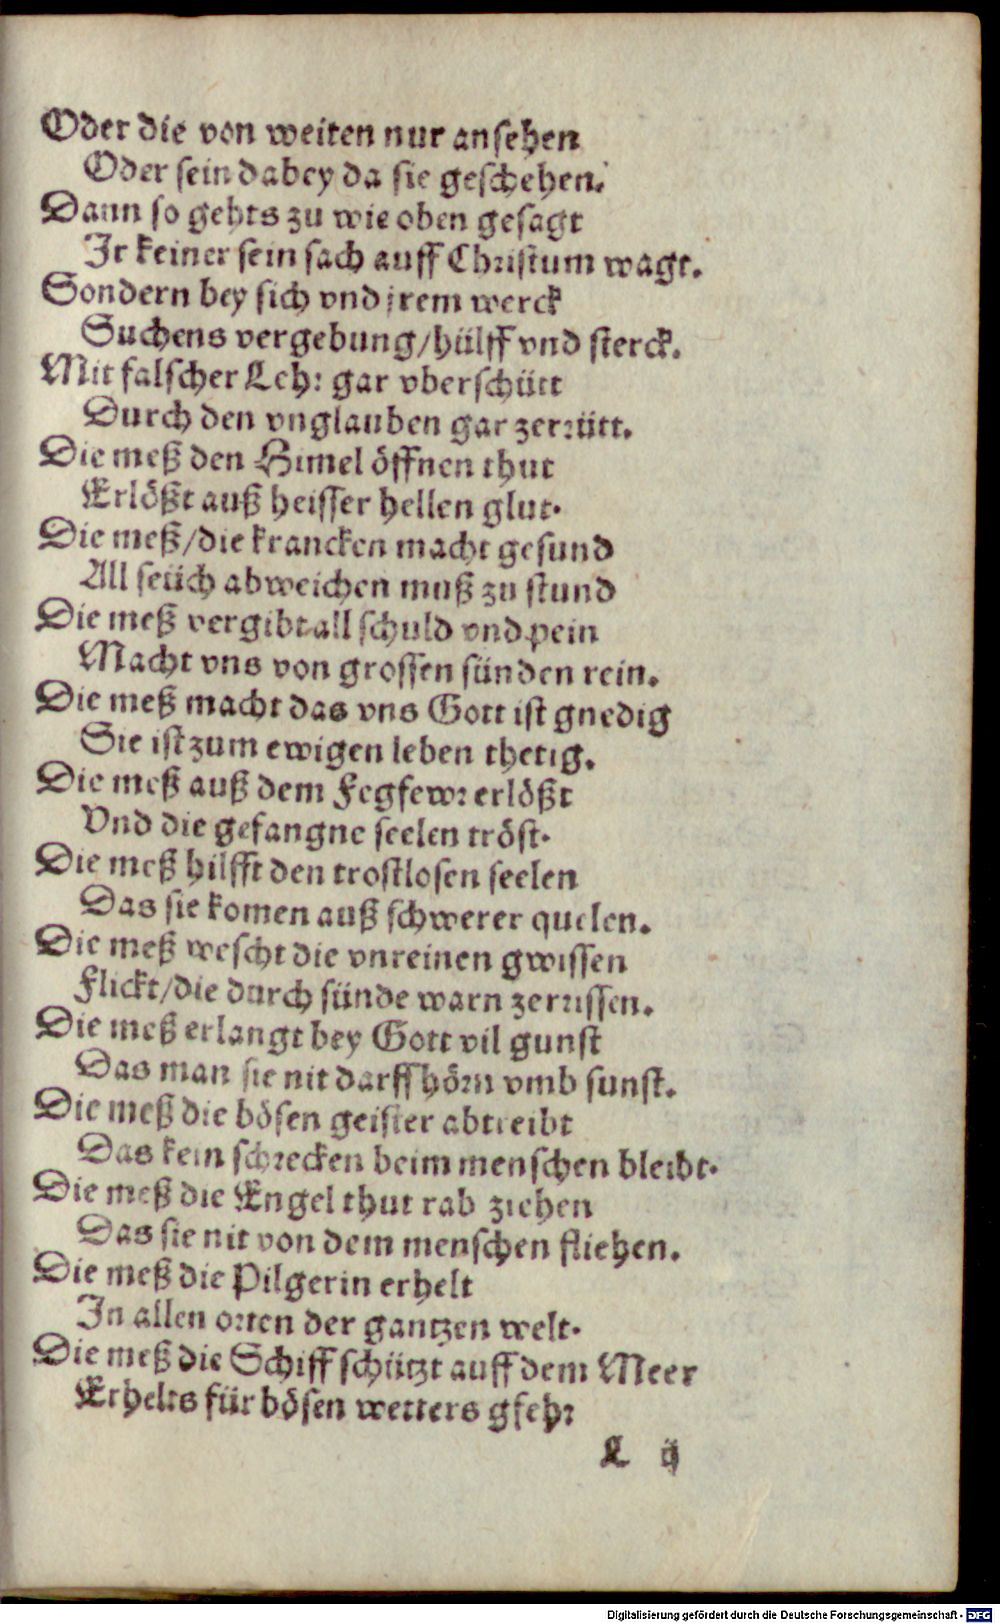 Oder die von weiten nur ansehen
Oder sein dabey da sie geschehen.
Dann so gehts zu wie oben gesagt
Ir keiner sein sach auff Christum wagt.
Sondern bey sich vnd jrem werck
Suchens vergebung/hülff vnd sterck.
Mit falscher Lehr gar vberschütt
Durch den vnglauben gar zerrütt.
Die meß den Himel öffnen thut
Erlößt auß heisser hellen glut.
Die meß/die krancken macht gesund
All seüch abweichen muß zu stund
Die meß vergibt all schuld vnd pein
Macht vns von grossen sünden rein.
Die meß macht das vns Gott ist gnedig
Sie ist zum ewigen leben thetig.
Die meß auß dem Fegfewr erlößt
Vnd die gefangne seelen tröst.
Die meß hilfft den trostlosen seelen
Das sie komen auß schwerer quelen.
Die meß wescht die vnreinen gwissen
Flickt/die durch sünde warn zerrissen.
Die meß erlangt bey Gott vil gunst
Das man sie nit darff hörn vmb sunst.
Die meß die bösen geister abtreibt
Das kein schrecken beim menschen bleibt.
Die meß die Engel thut rab ziehen
Das sie nit von dem menschen fliehen.
Die meß die Pilgerin erhelt
In allen orten der gantzen welt.
Die meß die Schiff schützt auff dem Meer
Erhelts für bösen wetters gfehr
L ij
Digitalisierung gefördert durch die Deutsche Forschungsgemeinschaft - DFG